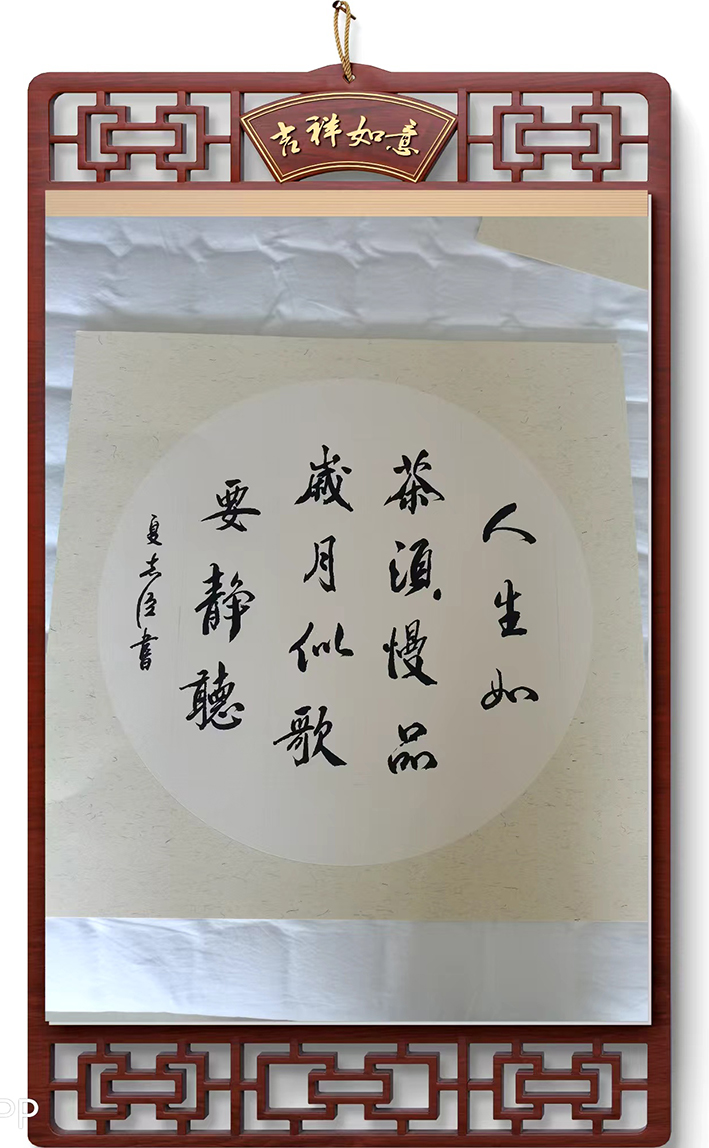 吉祥如意
人生如
茶須慢品
歲月似歌
要靜聽
夏志臣書
PP